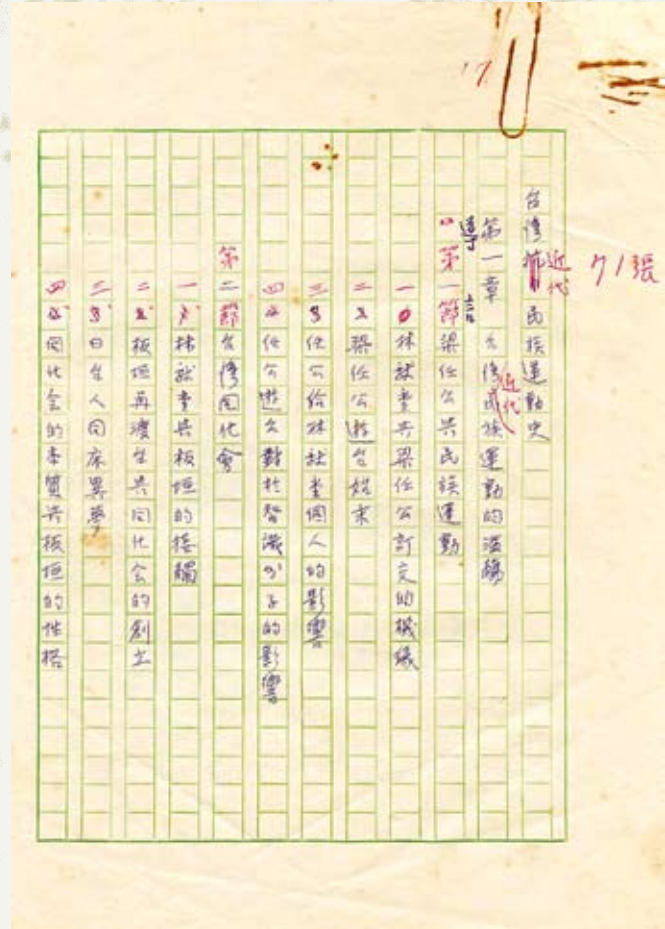 17.
71張
台灣抗日近代民族運動史
第一章 台灣民族近代運動的濫觴
導言
第一節梁任公與民族運動
一 林献堂與梁任公訂交的機緣
二 梁任公遊台始末
三 任公給林献堂個人的影響
四 任公遊台對於智識分子的影響
第二節台湾同化會
一 林献堂與板垣的接觸
二 板垣再渡台與同化会的創立
三 日台人同床異夢
四 同化会的本質與板垣的性格